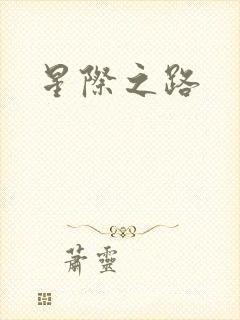 星際之路
蕭靈